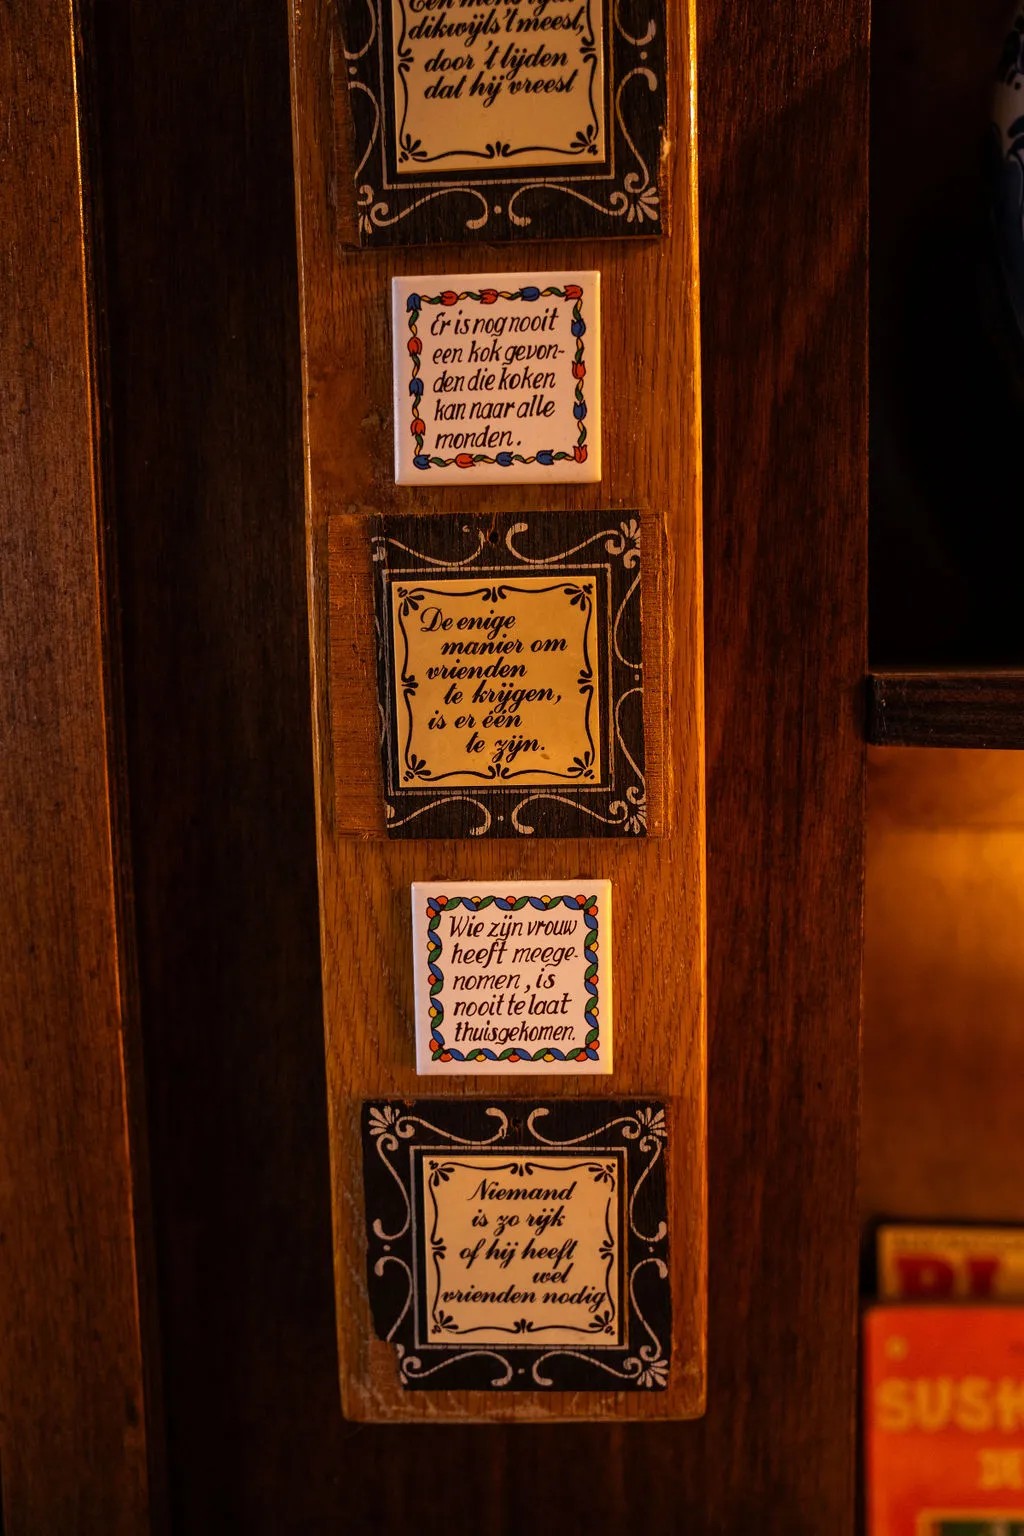 Een mens lijdt
dikwijls 't meest,
door 't lijden
dat hij vreest
Er is nog nooit
een kok gevon-
den die koken
kan naar alle
monden.
De enige
manier om
vrienden
te krijgen,
is er één
te zijn.
Wie zijn vrouw
heeft meege-
nomen, is
nooit te laat
thuisgekomen.
Niemand
is zo rijk
of hij heeft
wel
vrienden nodig
SUSK